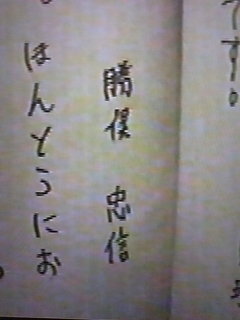 です。
勝俣 忠信
ほんとうにお